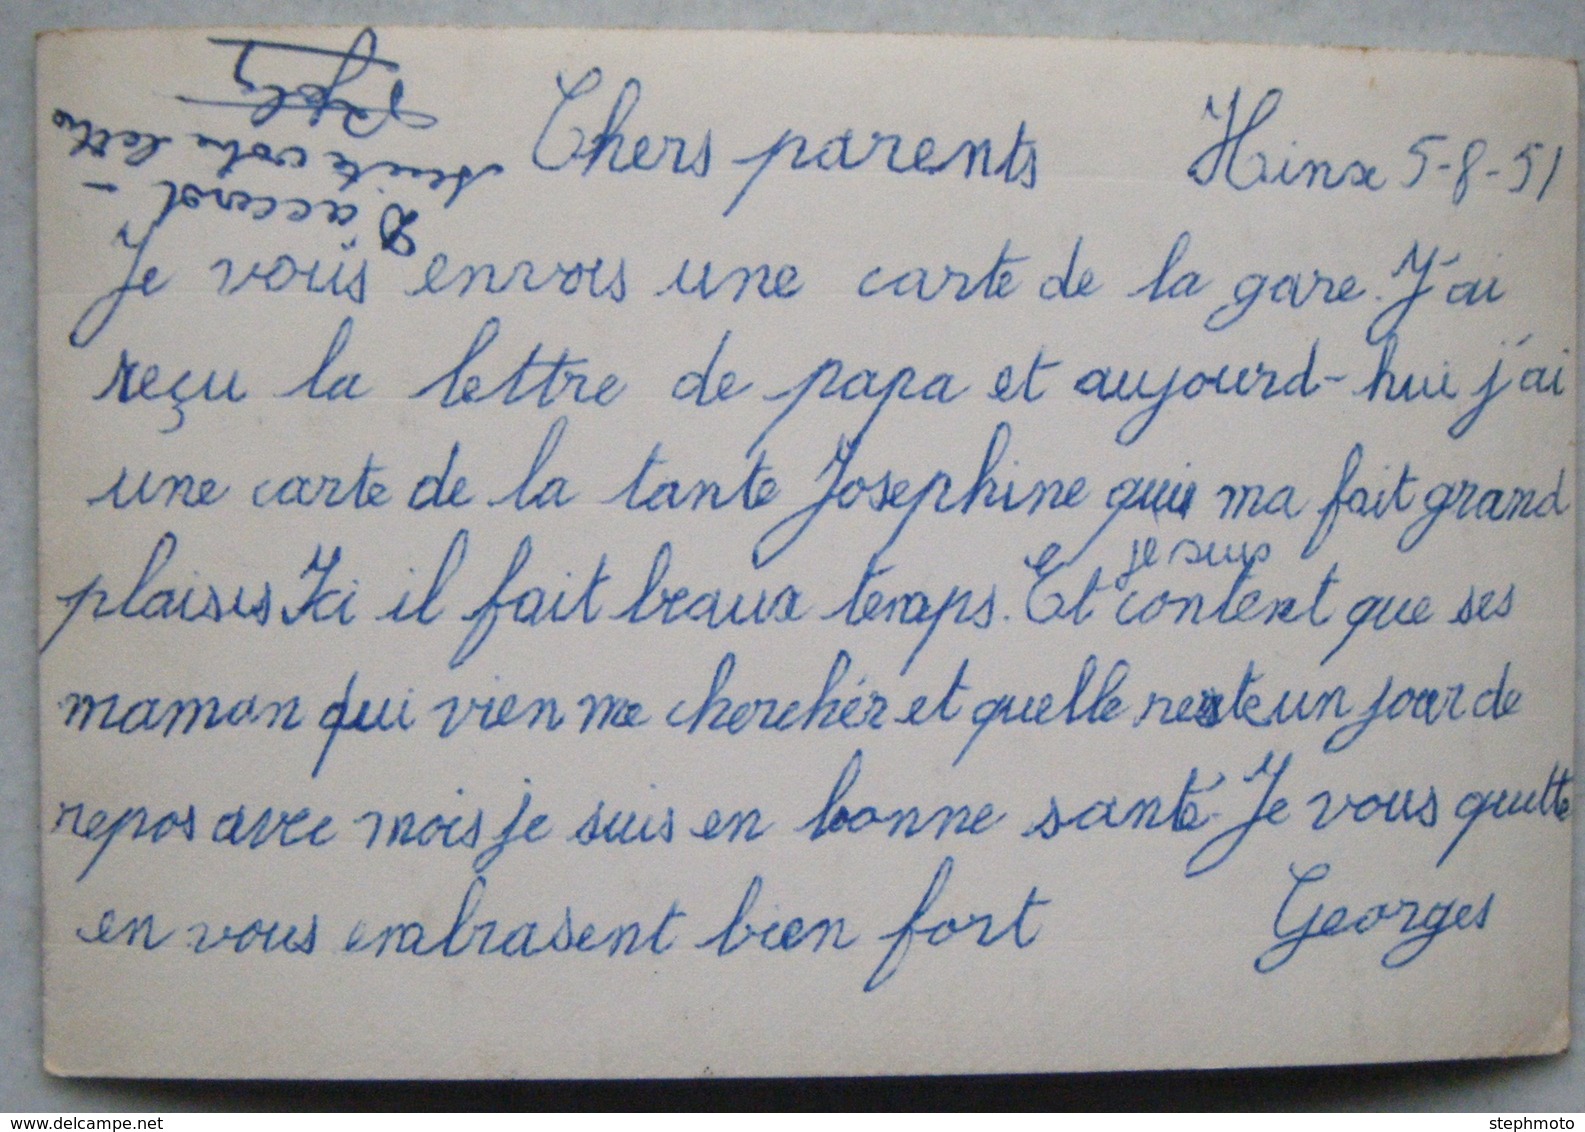 D'accord -
suite votre lettre
Chers parents Hinx 5-8-51
Je vous envois une carte de la gare. J'ai
reçu la lettre de papa et aujourd-hui j'ai
une carte de la tante Josephine qui ma fait grand
plaisis Ici il fait beaux temps. Et je suis content que ses
maman qui vien me cherchér et quelle reste un jour de
repos avec mois je suis en bonne santé. Je vous quitte
en vous embrasent bien fort Georges
www.delcampe.net
stephmoto